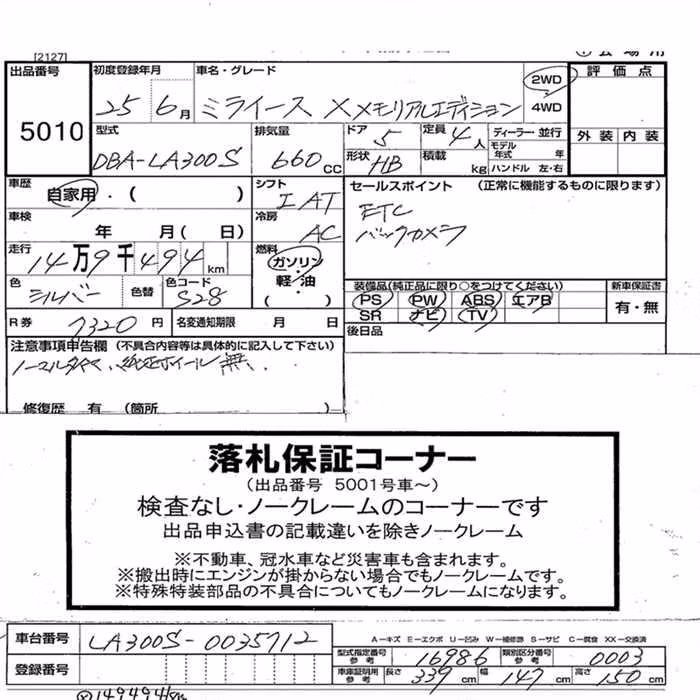 [2127]
出品番号 初度登録年月 車名・グレード 2WD 評価点
5010 25 6月 ミライース Xメモリアルエディション 4WD
外装 内装
型式 排気量 ドア 5 定員 4人 ディーラー・並行
DBA-LA300S 660cc 形状 HB 積載 kg モデル年式 年
ハンドル 左・右
車歴 自家用・( ) シフト I AT セールスポイント (正常に機能するものに限ります)
車検 年 月( 日) 冷房 AC ETC
バックカメラ
走行 14万9千494km 燃料 ガソリン・軽・油 ( )
色 シルバー 色替 色コード S28
装備品(純正品に限り○をつけてください) 新車保証書
PS PW ABS エアB 有・無
SR ナビ TV
R券 7320円 名変通知期限 月 日 後日品
注意事項申告欄 (不具合内容等は具体的に記入して下さい)
ノーマルタイヤ、純正ホイール無.
修復歴 有 (箇所 )
落札保証コーナー
(出品番号 5001号車～)
検査なし・ノークレームのコーナーです
出品申込書の記載違いを除きノークレーム
※不動車、冠水車など災害車も含まれます。
※搬出時にエンジンが掛からない場合でもノークレームです。
※特殊特装部品の不具合についてもノークレームになります。
車台番号 LA300S-0035712 A－キズ E－エクボ U－凹み W－補修跡 S－サビ C－腐食 XX－交換済
登録番号 型式指定番号 参考 16986 類別区分番号 参考 0003
車庫証明用 参考 長さ 339cm 幅 147cm 高さ 150cm
149494km